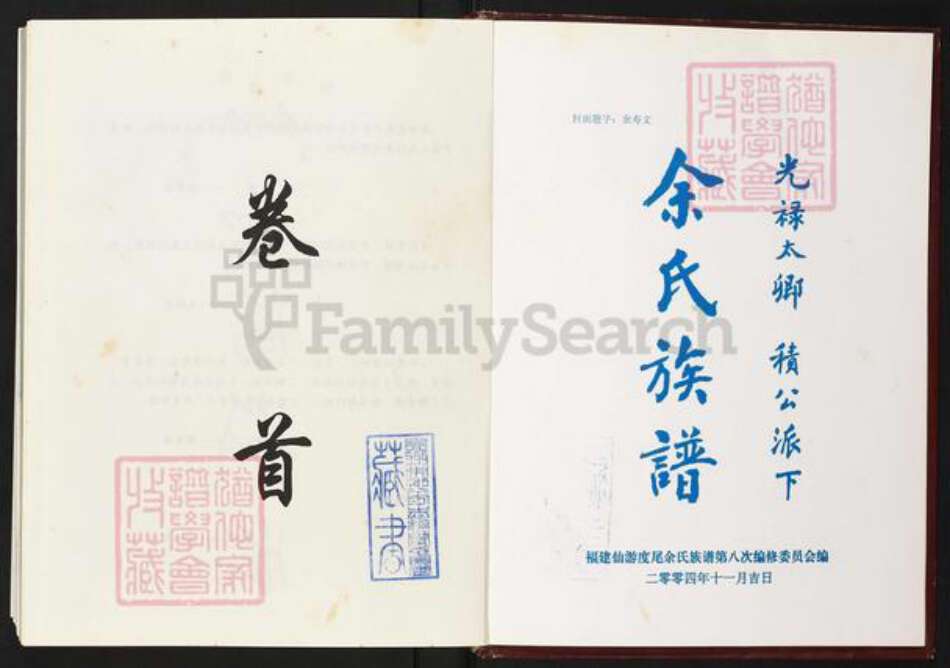 卷首
藏书
FamilySearch
封面题字：余寿文
光禄太卿 積公派下
余氏族譜
福建仙游度尾余氏族谱第八次编修委员会编
二零零四年十一月吉日